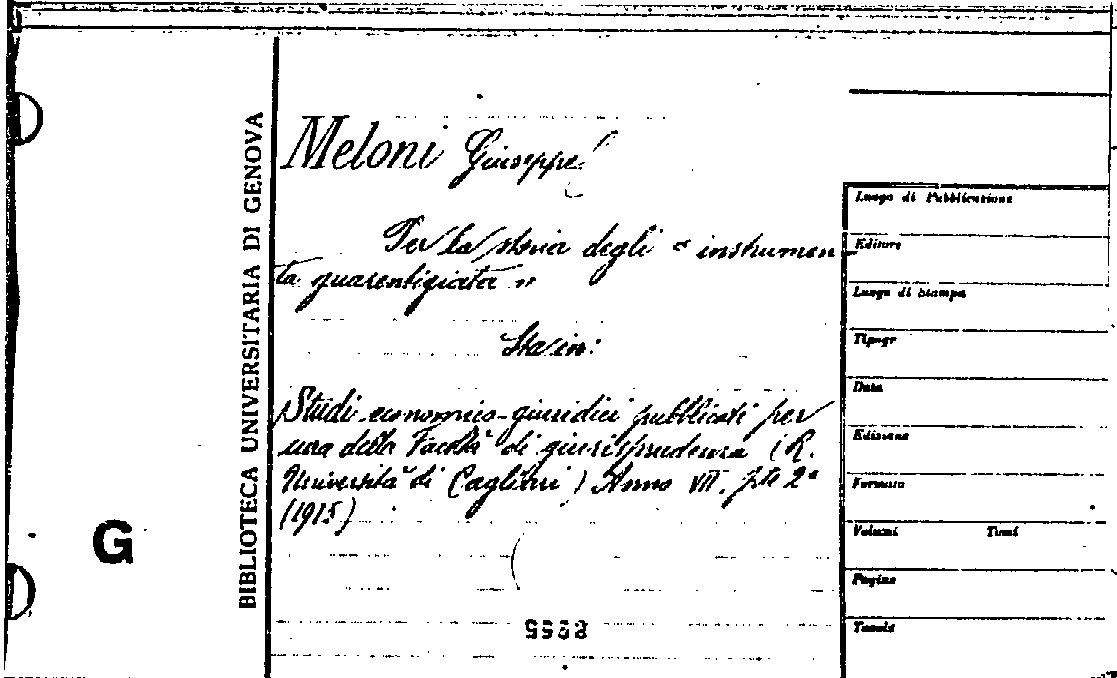 BIBLIOTECA UNIVERSITARIA DI GENOVA
G
Meloni Giuseppe
Per la storia degli « instrumen
ta guarentigiata »
Sta in:
Studi economico-giuridici pubblicati per
cura della Facoltà di giurisprudenza (R.
Università di Cagliari) Anno VII. pte 2ª
(1915)
Luogo di Pubblicazione
Editore
Luogo di Stampa
Tipogr
Data
Edizione
Formato
Volumi Tomi
Pagine
Tavole